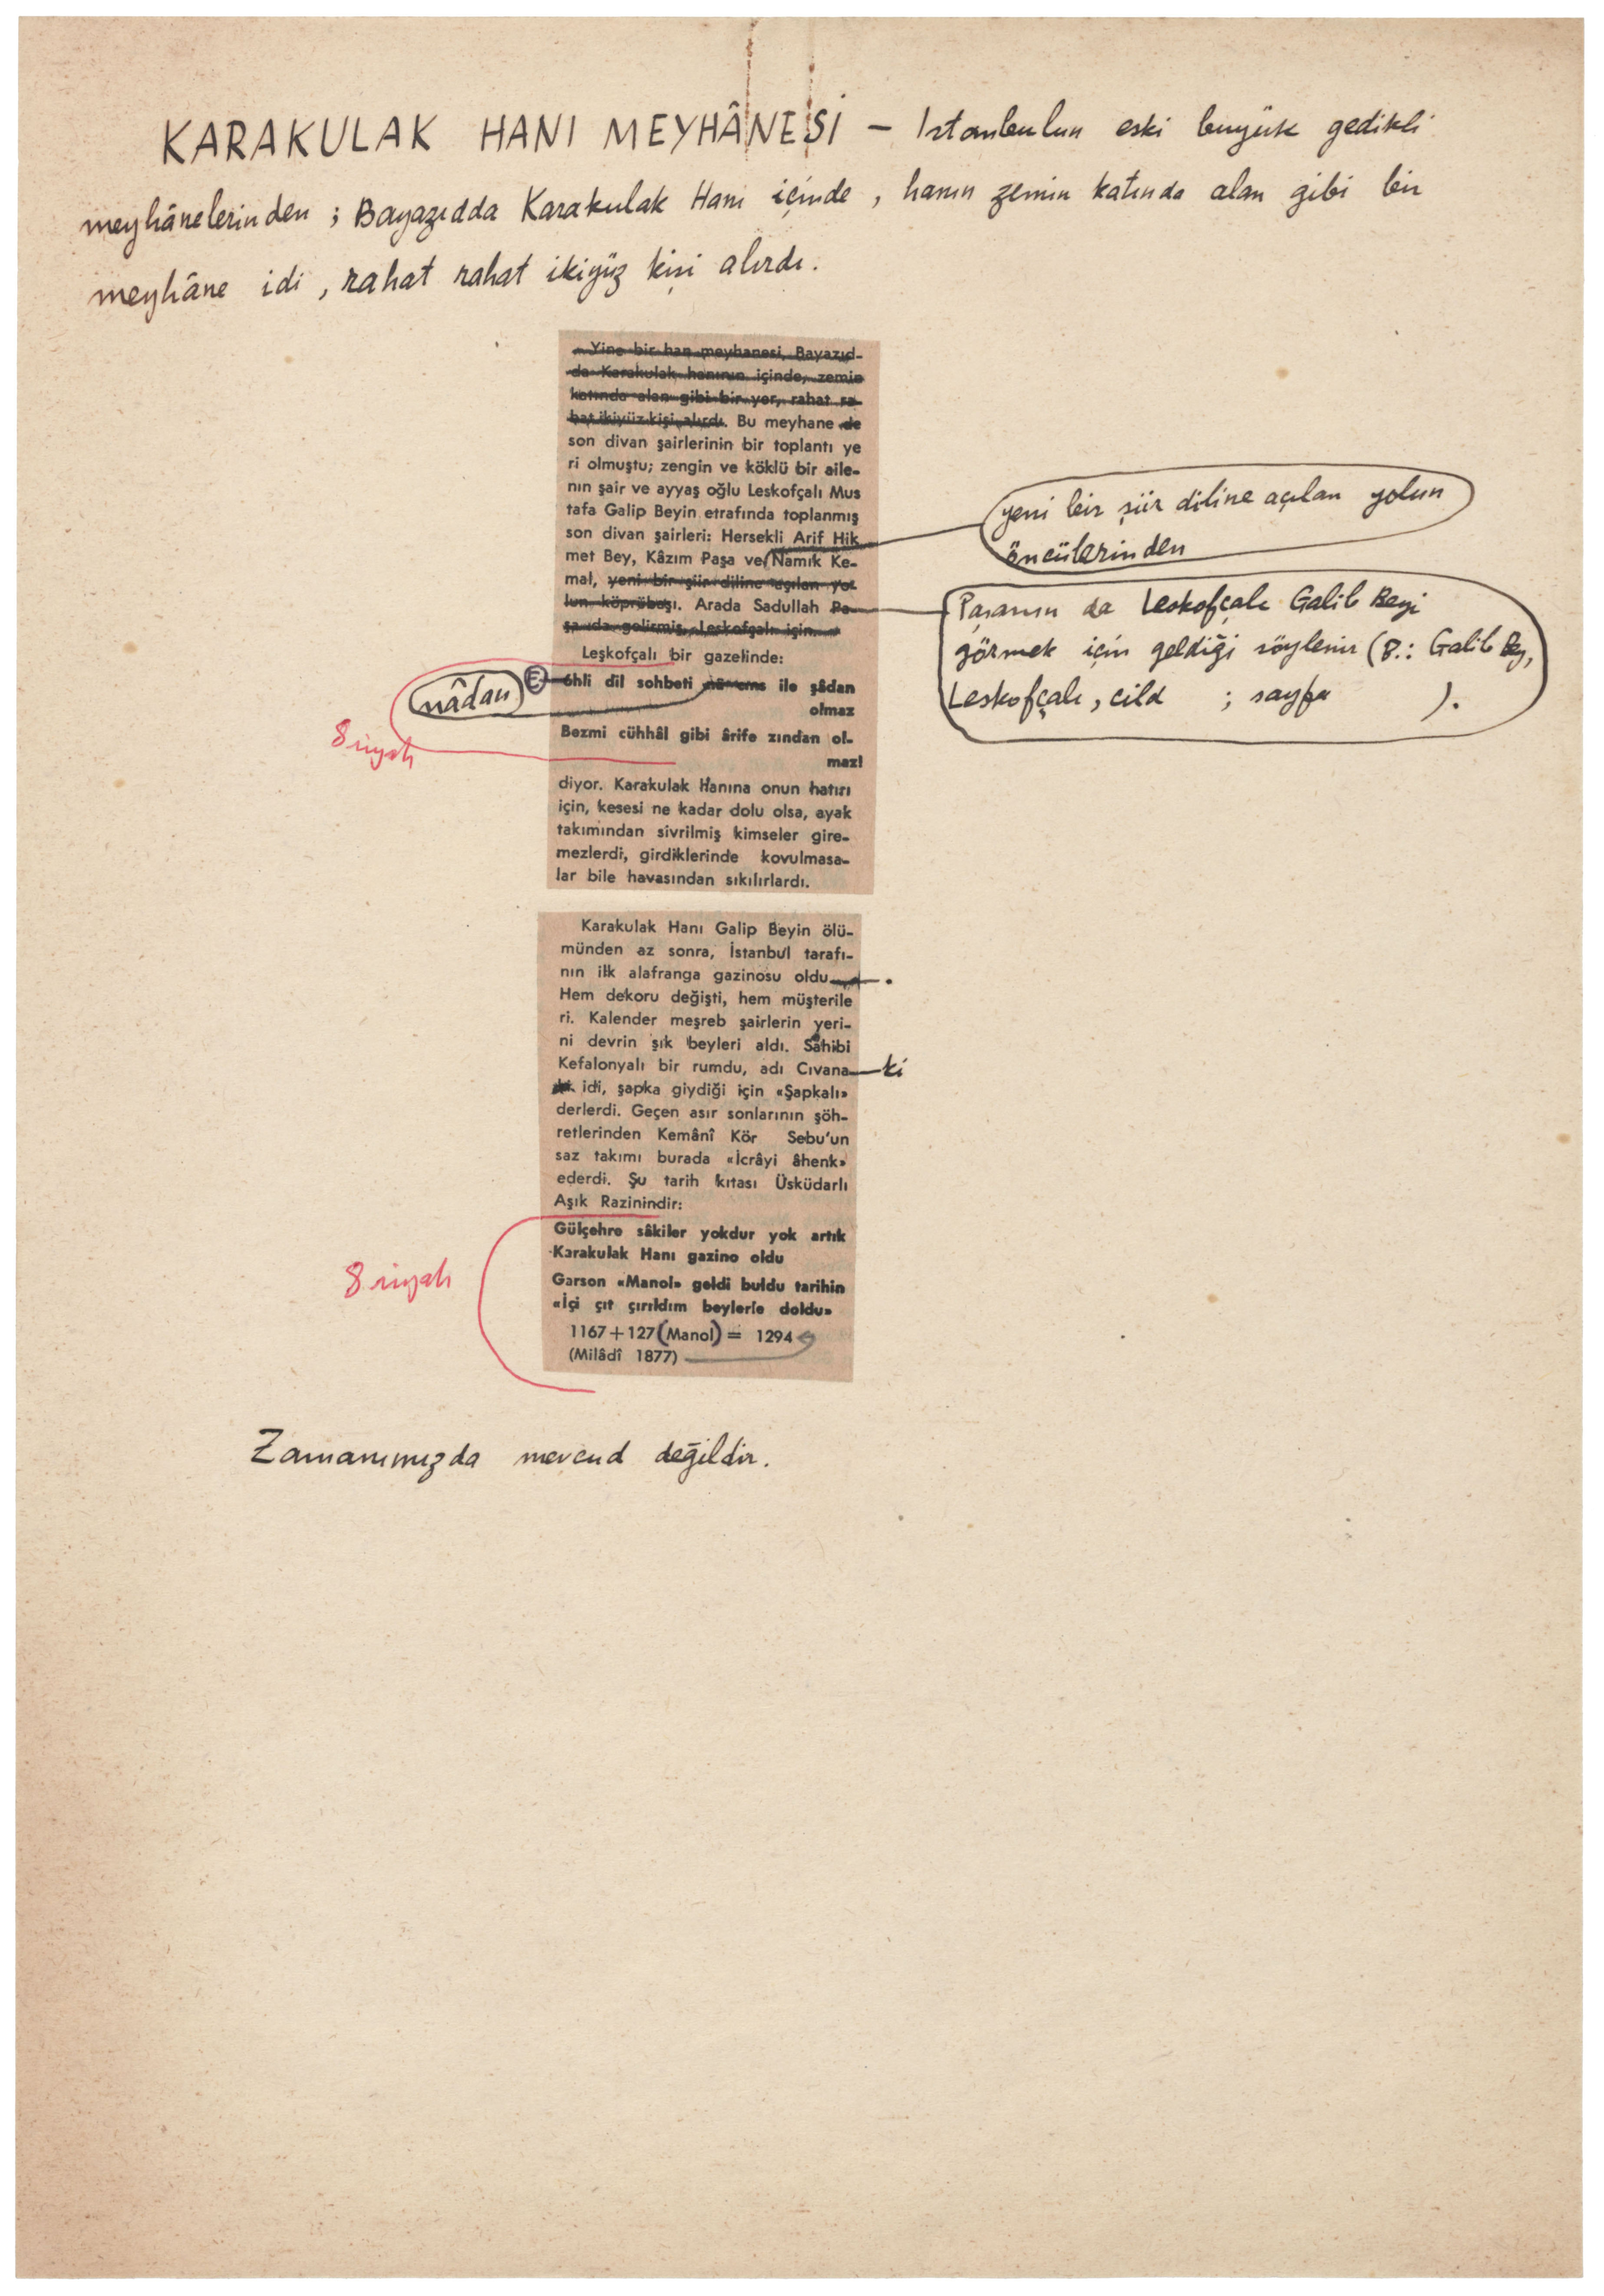 KARAKULAK HANI MEYHÂNESİ – Istanbulun eski büyük gedikli
meyhânelerinden ; Bayazıdda Karakulak Hanı içinde , hanın zemin katında alan gibi bir
meyhâne idi , rahat rahat ikiyüz kişi alırdı .
Yine bir han meyhanesi, Bayazıd-
da Karakulak hanının içinde, zemin
katında alan gibi bir yer, rahat ra-
hat ikiyüz kişi alırdı. Bu meyhane de
son divan şairlerinin bir toplantı ye
ri olmuştu; zengin ve köklü bir aile-
nın şair ve ayyaş oğlu Leskofçalı Mus
tafa Galip Beyin etrafında toplanmış
son divan şairleri: Hersekli Arif Hik
met Bey, Kâzım Paşa ve Namık Ke-
mal, yeni bir şiir diline açılan yo-
lun köprübaşı. Arada Sadullah Pa-
şa da gelirmiş, Leskofçalı için
yeni bir şiir diline açılan yolun
öncülerinden
Paşanın da Leskofçalı Galib Beyi
görmek için geldiği söylenir (B.: Galib Bey,
Leskofçalı, cild ; sayfa ).
Leşkofçalı bir gazelinde:
nâdan
E
éhli dil sohbeti ile şâdan
olmaz
Bezmi cühhâl gibi ârife zından ol-
maz!
8 siyah
diyor. Karakulak Hanına onun hatırı
için, kesesi ne kadar dolu olsa, ayak
takımından sivrilmiş kimseler gire-
mezlerdi, girdiklerinde kovulmasa-
lar bile havasından sıkılırlardı.
Karakulak Hanı Galip Beyin ölü-
münden az sonra, İstanbul tarafı-
nın ilk alafranga gazinosu oldu .
Hem dekoru değişti, hem müşterile
ri. Kalender meşreb şairlerin yeri-
ni devrin şık beyleri aldı. Sahibi
Kefalonyalı bir rumdu, adı Cıvana ki
idi, şapka giydiği için «Şapkalı»
derlerdi. Geçen asır sonlarının şöh-
retlerinden Kemânî Kör Sebu'un
saz takımı burada «İcrâyi âhenk»
ederdi. Şu tarih kıtası Üsküdarlı
Aşık Razinindir:
Gülçehre sâkiler yokdur yok artık
Karakulak Hanı gazino oldu
Garson «Manol» geldi buldu tarihin
«İçi çıt çırıldım beylerle doldu»
1167+127(Manol) = 1294
(Milâdî 1877)
8 siyah
Zamanımızda mevcud değildir.